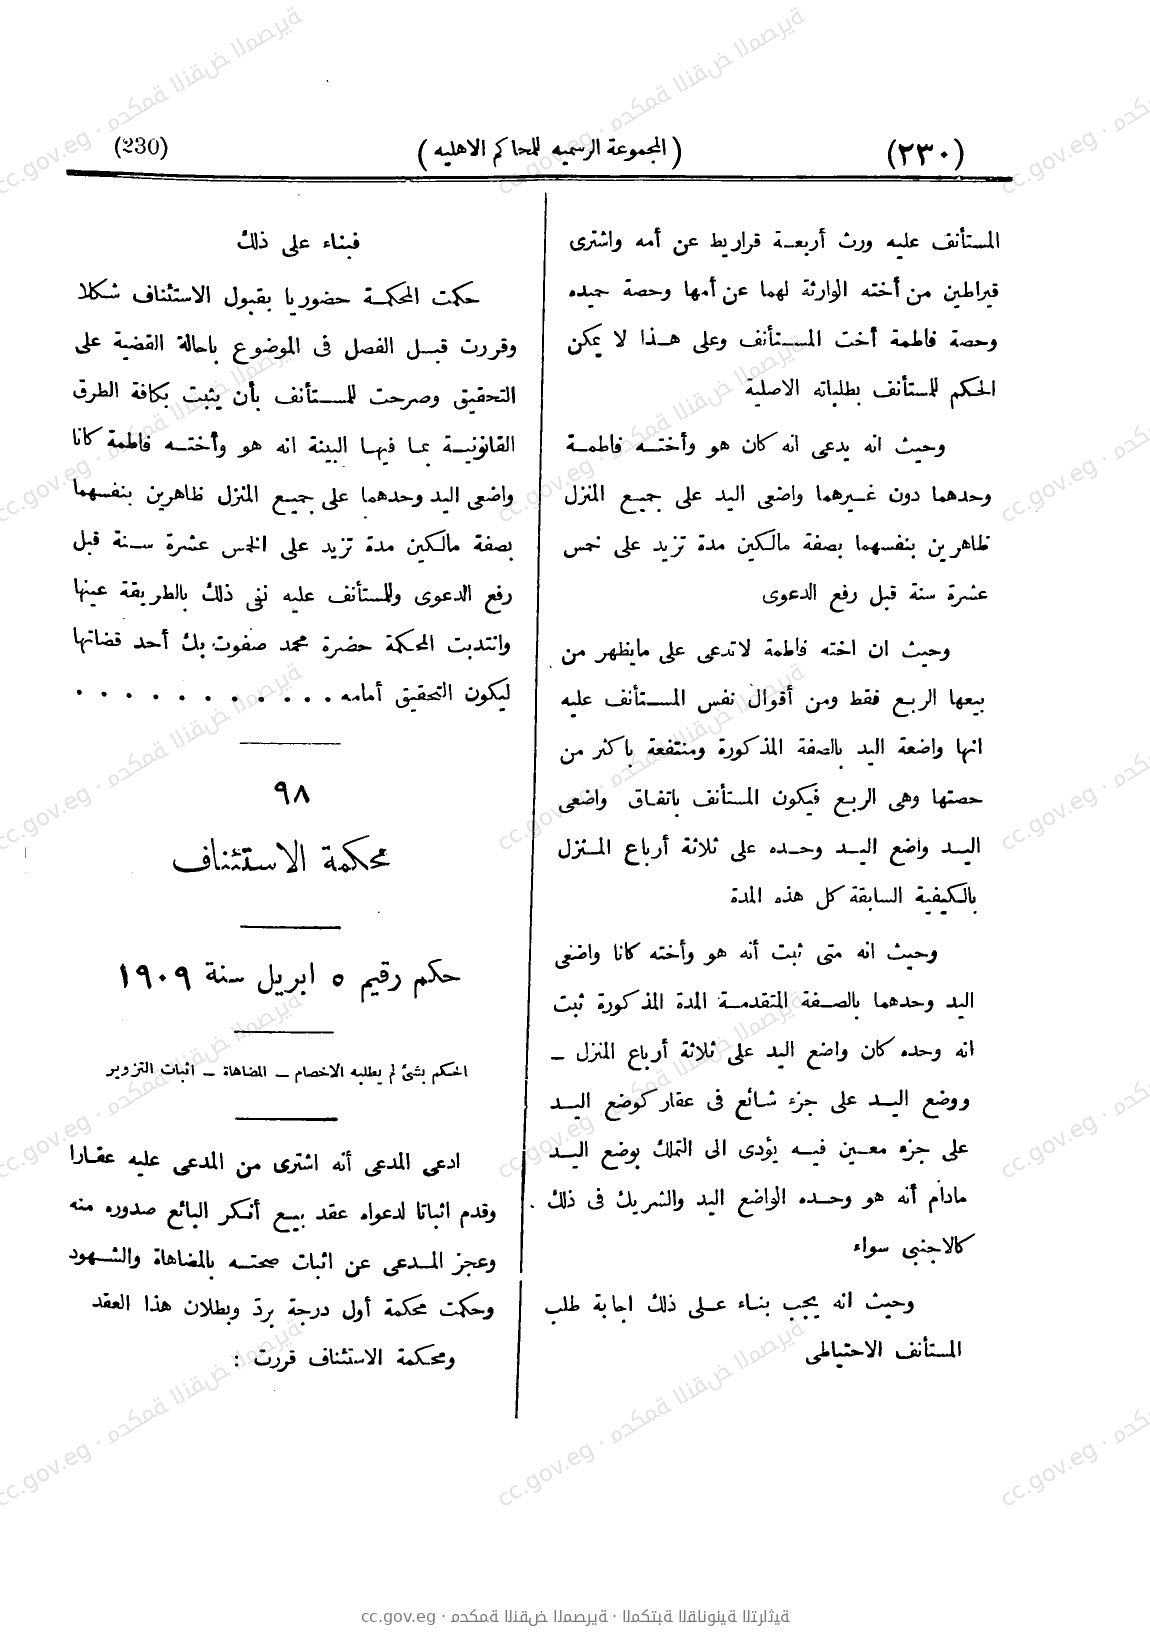 (٢٣٠)
(المجموعة الرسميه للمحاكم الاهليه)
(230)
المستأنف عليه ورث أربعة قراريط عن أمه واشترى
قيراطين من أخته الوارثة لهما عن أمها وحصة جيده
وحصة فاطمة أخت المستأنف وعلى هذا لا يمكن
الحكم للمستأنف بطلباته الاصلية
وحيث انه يدعى انه كان هو وأخته فاطمة
وحدهما دون غيرهما واضعى اليد على جميع المنزل
ظاهرين بنفسهما بصفة مالكين مدة تزيد على خمس
عشرة سنة قبل رفع الدعوى
وحيث ان اخته فاطمة لا تدعى على مايظهر من
بيعها الربع فقط ومن أقوال نفس المستأنف عليه
انها واضعة اليد بالصفة المذكورة ومنتفعة باكثر من
حصتها وهى الربع فيكون المستأنف باتفاق واضعى
اليد واضع اليد وحده على ثلاثة أرباع المنزل
بالكيفية السابقة كل هذه المدة
وحيث انه متى ثبت أنه هو وأخته كانا واضعى
اليد وحدهما بالصفة المتقدمة المدة المذكورة ثبت
انه وحده كان واضع اليد على ثلاثة أرباع المنزل –
ووضع اليد على جزء شائع فى عقار كوضع اليد
على جزء معين فيه يؤدى الى التملك بوضع اليد
مادام أنه هو وحده الواضع اليد والشريك فى ذلك
كالاجنبى سواء
وحيث انه يجب بناء على ذلك اجابة طلب
المستأنف الاحتياطى
فبناء على ذلك
حكمت المحكمة حضوريا بقبول الاستئناف شكلا
وقررت قبل الفصل فى الموضوع باحالة القضية على
التحقيق وصرحت للمستأنف بأن يثبت بكافة الطرق
القانونية بما فيها البينة انه هو وأخته فاطمة كانا
واضعى اليد وحدهما على جميع المنزل ظاهرين بنفسهما
بصفة مالكين مدة تزيد على الخمس عشرة سنة قبل
رفع الدعوى وللمستأنف عليه نفى ذلك بالطريقة عينها
وانتدبت المحكمة حضرة محمد صفوت بك أحد قضاتها
ليكون التحقيق أمامه . . . . . . . . . . .
٩٨
محكمة الاستئناف
حكم رقيم ٥ ابريل سنة ١٩٠٩
الحكم بشئ لم يطلبه الاخصام – المضاهاة – اثبات التزوير
ادعى المدعى أنه اشترى من المدعى عليه عقارا
وقدم اثباتا لدعواه عقد بيع أنكر البائع صدوره منه
وعجز المدعى عن اثبات صحته بالمضاهاة والشهود
وحكمت محكمة أول درجة بردّ وبطلان هذا العقد
ومحكمة الاستئناف قررت :
cc.gov.eg · محكمة النقض المصرية · المكتبة القانونية التراثية